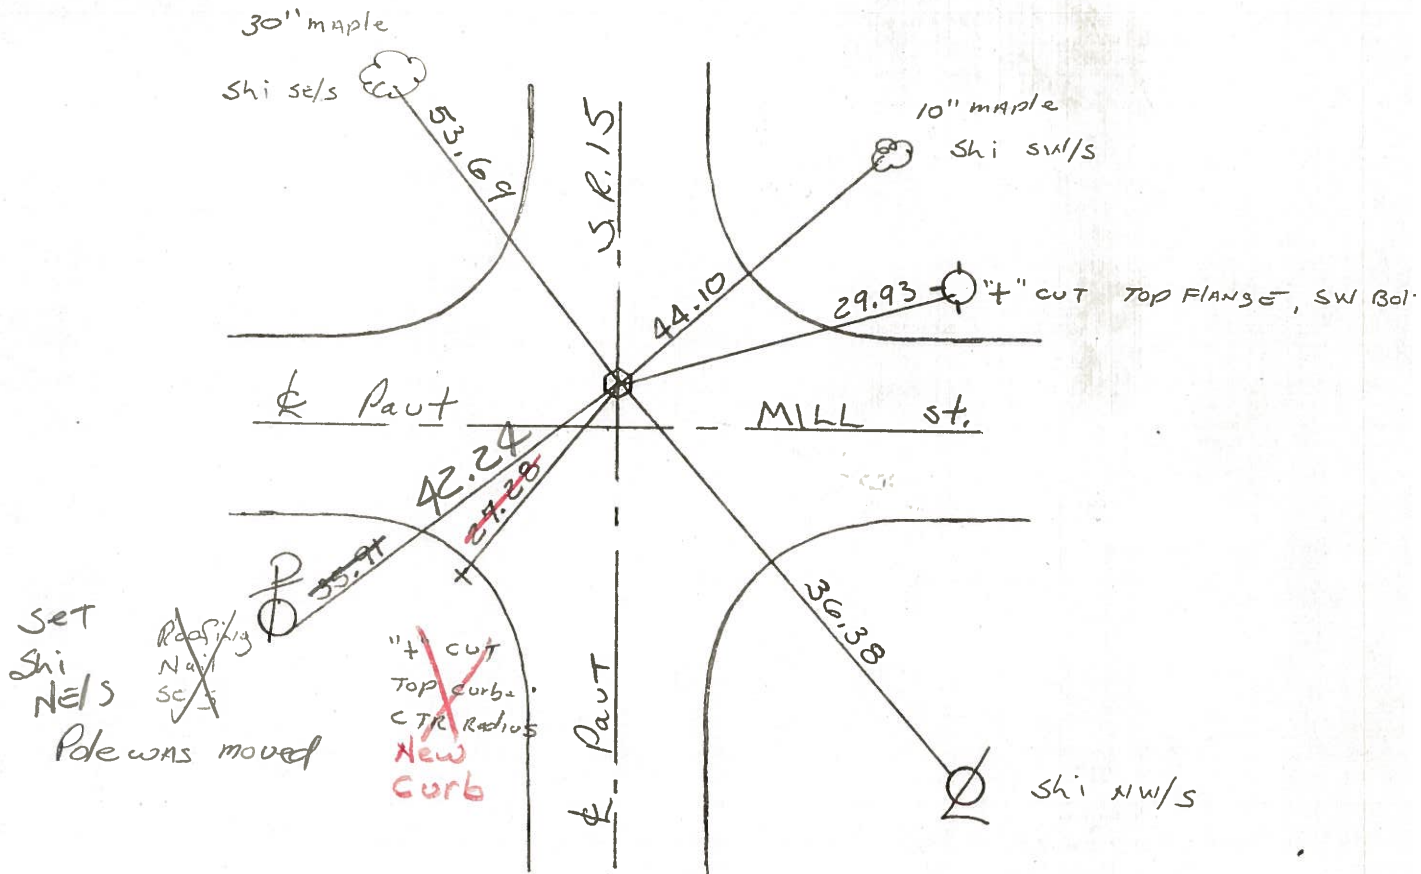 30" maple
Shi SE/S
53.69
S.R. 15
10" maple
Shi SW/S
44.10
29.93
"+" cut Top Flange, SW Bol
℄ Pavt
MILL st.
42.24
27.28
35.91
P
Set
Shi
NE/S
Pole was moved
Roofing
Nail
"+" cut
Top curb
CTR Radius
New
Curb
℄ Pavt
36.38
Shi NW/S